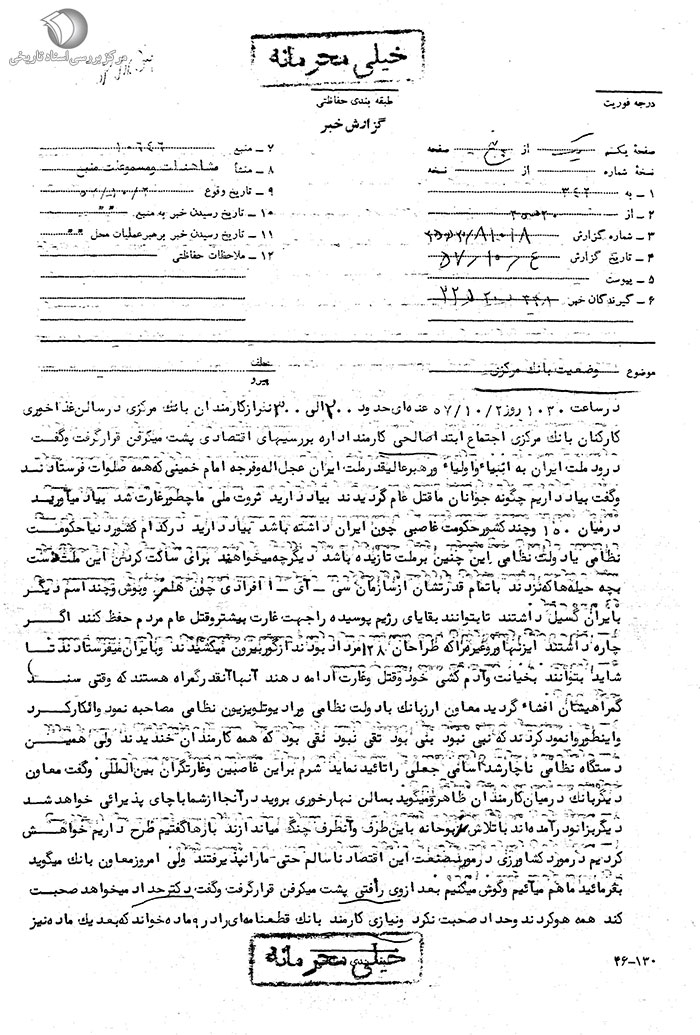 مرکز بررسی اسناد تاریخی
خیلی محرمانه
طبقه بندی حفاظتی
درجه فوریت
گزارش خبر
صفحهٔ یکم از پنج صفحه
نسخهٔ شماره از نسخه
۱ – به ۳۴۲
۲ – از ۲۰ ه ۲۵
۳ – شماره گزارش
۴ – تاریخ گزارش ۵۷/۱۰/۴
۵ – پیوست
۶ – گیرندگان خبر
۷ – منبع ۱۰۶۴۶
۸ – منشأ مشاهدات ومسموعات منبع
۹ – تاریخ وقوع ۵۷/۱۰/۲
۱۰ – تاریخ رسیدن خبر به منبع " "
۱۱ – تاریخ رسیدن خبر برهبرعملیات محل " "
۱۲ – ملاحظات حفاظتی
موضوع وضعیت بانک مرکزی
عطف
پیرو
درساعت ۱۰۳۰ روز ۵۷/۱۰/۲ عده‌ای حدود ۲۰۰ الی ۳۰۰ نفرازکارمندان بانک مرکزی درسالن غذاخوری
کارکنان بانک مرکزی اجتماع ابتدا صالحی کارمند اداره بررسیهای اقتصادی پشت میکرفن قرارگرفت وگفت
درود ملت ایران به انبیاء واولیاء ورهبرعالیقدرملت ایران عجل‌اله‌وفرجه امام خمینی که‌همه صلوات فرستاد ند
وگفت بیاد داریم چگونه جوانان ماقتل عام گردیدند بیاد دارید ثروت ملی ماچطورغارت شد بیاد میآورید
درمیان ۱۵۰ وچند کشورحکومت غاصبی چون ایران داشته باشد بیاد دارید درکدام کشوردنیاحکومت
نظامی یادولت نظامی این چنین برملت تازیده باشد دیگرچه‌میخواهند برای ساکت کردن این ملت دست
بچه حیله‌هاکه‌نزدند باتمام قدرتشان ازسازمان سی – آی – ا افرادی چون هلمز وبوش وچند اسم دیگر
بایران گسیل داشتند تابتوانند بقایای رژیم پوسیده راجهت غارت بیشتروقتل عام مردم حفظ کنند اگر
چاره داشتند ایزنهاوروغیره‌راکه طراحان ۲۸مرداد بودند ازگوربیرون میکشیدند وبایران میفرستادند تا
شاید بتوانند بخیانت وآدم کشی خود وقتل وغارت ادامه دهند آنهاآنقدرگمراه هستند که وقتی سند
گمراهیشان افشاء گردید معاون ارزبانک بادولت نظامی ورادیوتلویزیون نظامی مصاحبه نمود وانکارکرد
واینطوروانمود کردند که نبی نبود بنی بود تقی نبود نقی بود که همه کارمندان خندیدند ولی همین
دستگاه نظامی ناچارشد اسامی جعلی راتائید نماید شرم براین غاصبین وغارتگران بین‌المللی وگفت معاون
دیگربانک درمیان کارمندان ظاهرومیگوید بسالن نهارخوری بروید درآنجاازشماباچای پذیرائی خواهد شد
دیگربزانود رآمده‌اند باتلاش مذبوحانه باین‌طرف وآنطرف چنگ میاندازند بارهاگفتیم طرح داریم خواهش
کردیم درمورد کشاورزی درمورد صنعت این اقتصاد ناسالم حتی مارانپذیرفتند ولی امروزمعاون بانک میگوید
بفرمائید ماهم میائیم وگوش میکنیم بعد ازوی رأفتی پشت میکرفن قرارگرفت وگفت دکترحداد میخواهد صحبت
کند همه هوکردند وحداد صحبت نکرد ونیازی کارمند بانک قطعنامه‌ای رادر۹ماده‌خواند که‌بعد یک ماده‌نیز
خیلی محرمانه
۴۶-۱۳۰